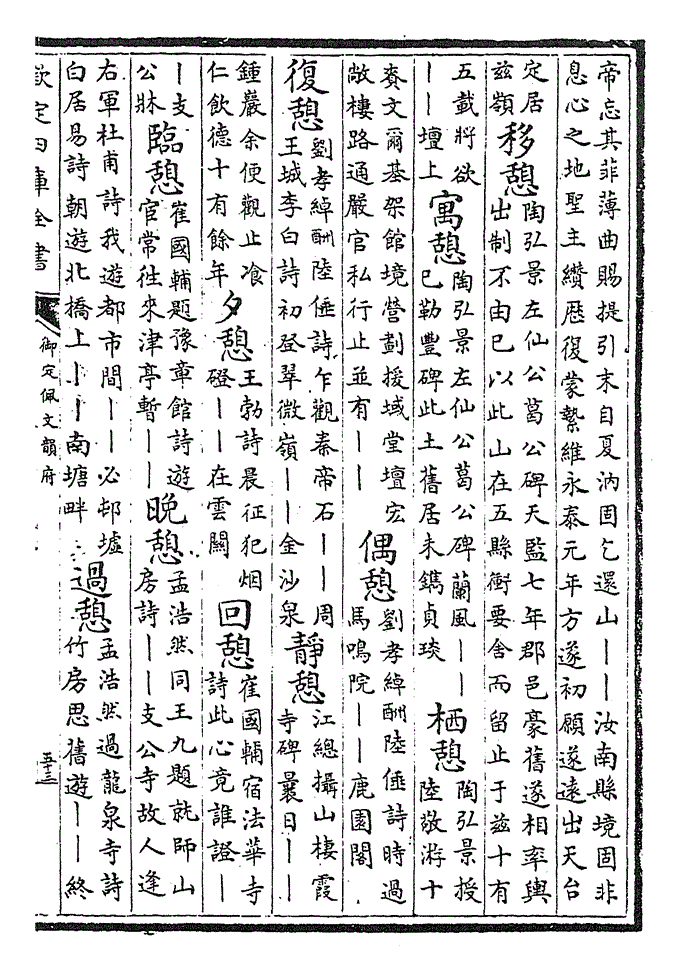 帝忘其菲薄曲賜提引末自夏汭固乞還山丨丨汝南縣境固非
息心之地聖主纘歴復蒙縶維永泰元年方遂初願遂遠出天台
定居
兹嶺
移憩
陶弘景左仙公葛公碑天監七年郡邑豪舊遂相率輿
出制不由已以此山在五縣衝要舍而留止于兹十有
五載將欲
丨丨壇上
寓憩
陶弘景左仙公葛公碑蘭風丨丨
已勒豐碑此土舊居未鐫貞琰
栖憩
陶弘景授
陸敬游十
賚文爾基架館境營劃援域堂壇宏
敞棲路通嚴官私行止並有丨丨
偶憩
劉孝綽酬陸倕詩時過
馬鳴院丨丨鹿園閣
復憩
劉孝綽酬陸倕詩乍觀秦帝石丨丨周
王城李白詩初登翠微嶺丨丨金沙泉
靜憩
江總攝山棲霞
寺碑曩日丨丨
鍾巖余便觀止飡
仁飲德十有餘年
夕憩
王勃詩晨征犯烟
磴丨丨在雲關
回憩
崔國輔宿法華寺
詩此心竟誰證丨丨
丨支
公牀
臨憩
崔國輔題豫章館詩遊
官常往來津亭暫丨丨
晚憩
孟浩然同王九題就師山
房詩丨丨支公寺故人逢
右軍杜甫詩我遊都市間丨丨必邨墟
白居易詩朝遊北橋上丨丨南塘畔
過憩
孟浩然過龍泉寺詩
竹房思舊遊丨丨終
欽定四庫全書
御定佩文韻府
五十三